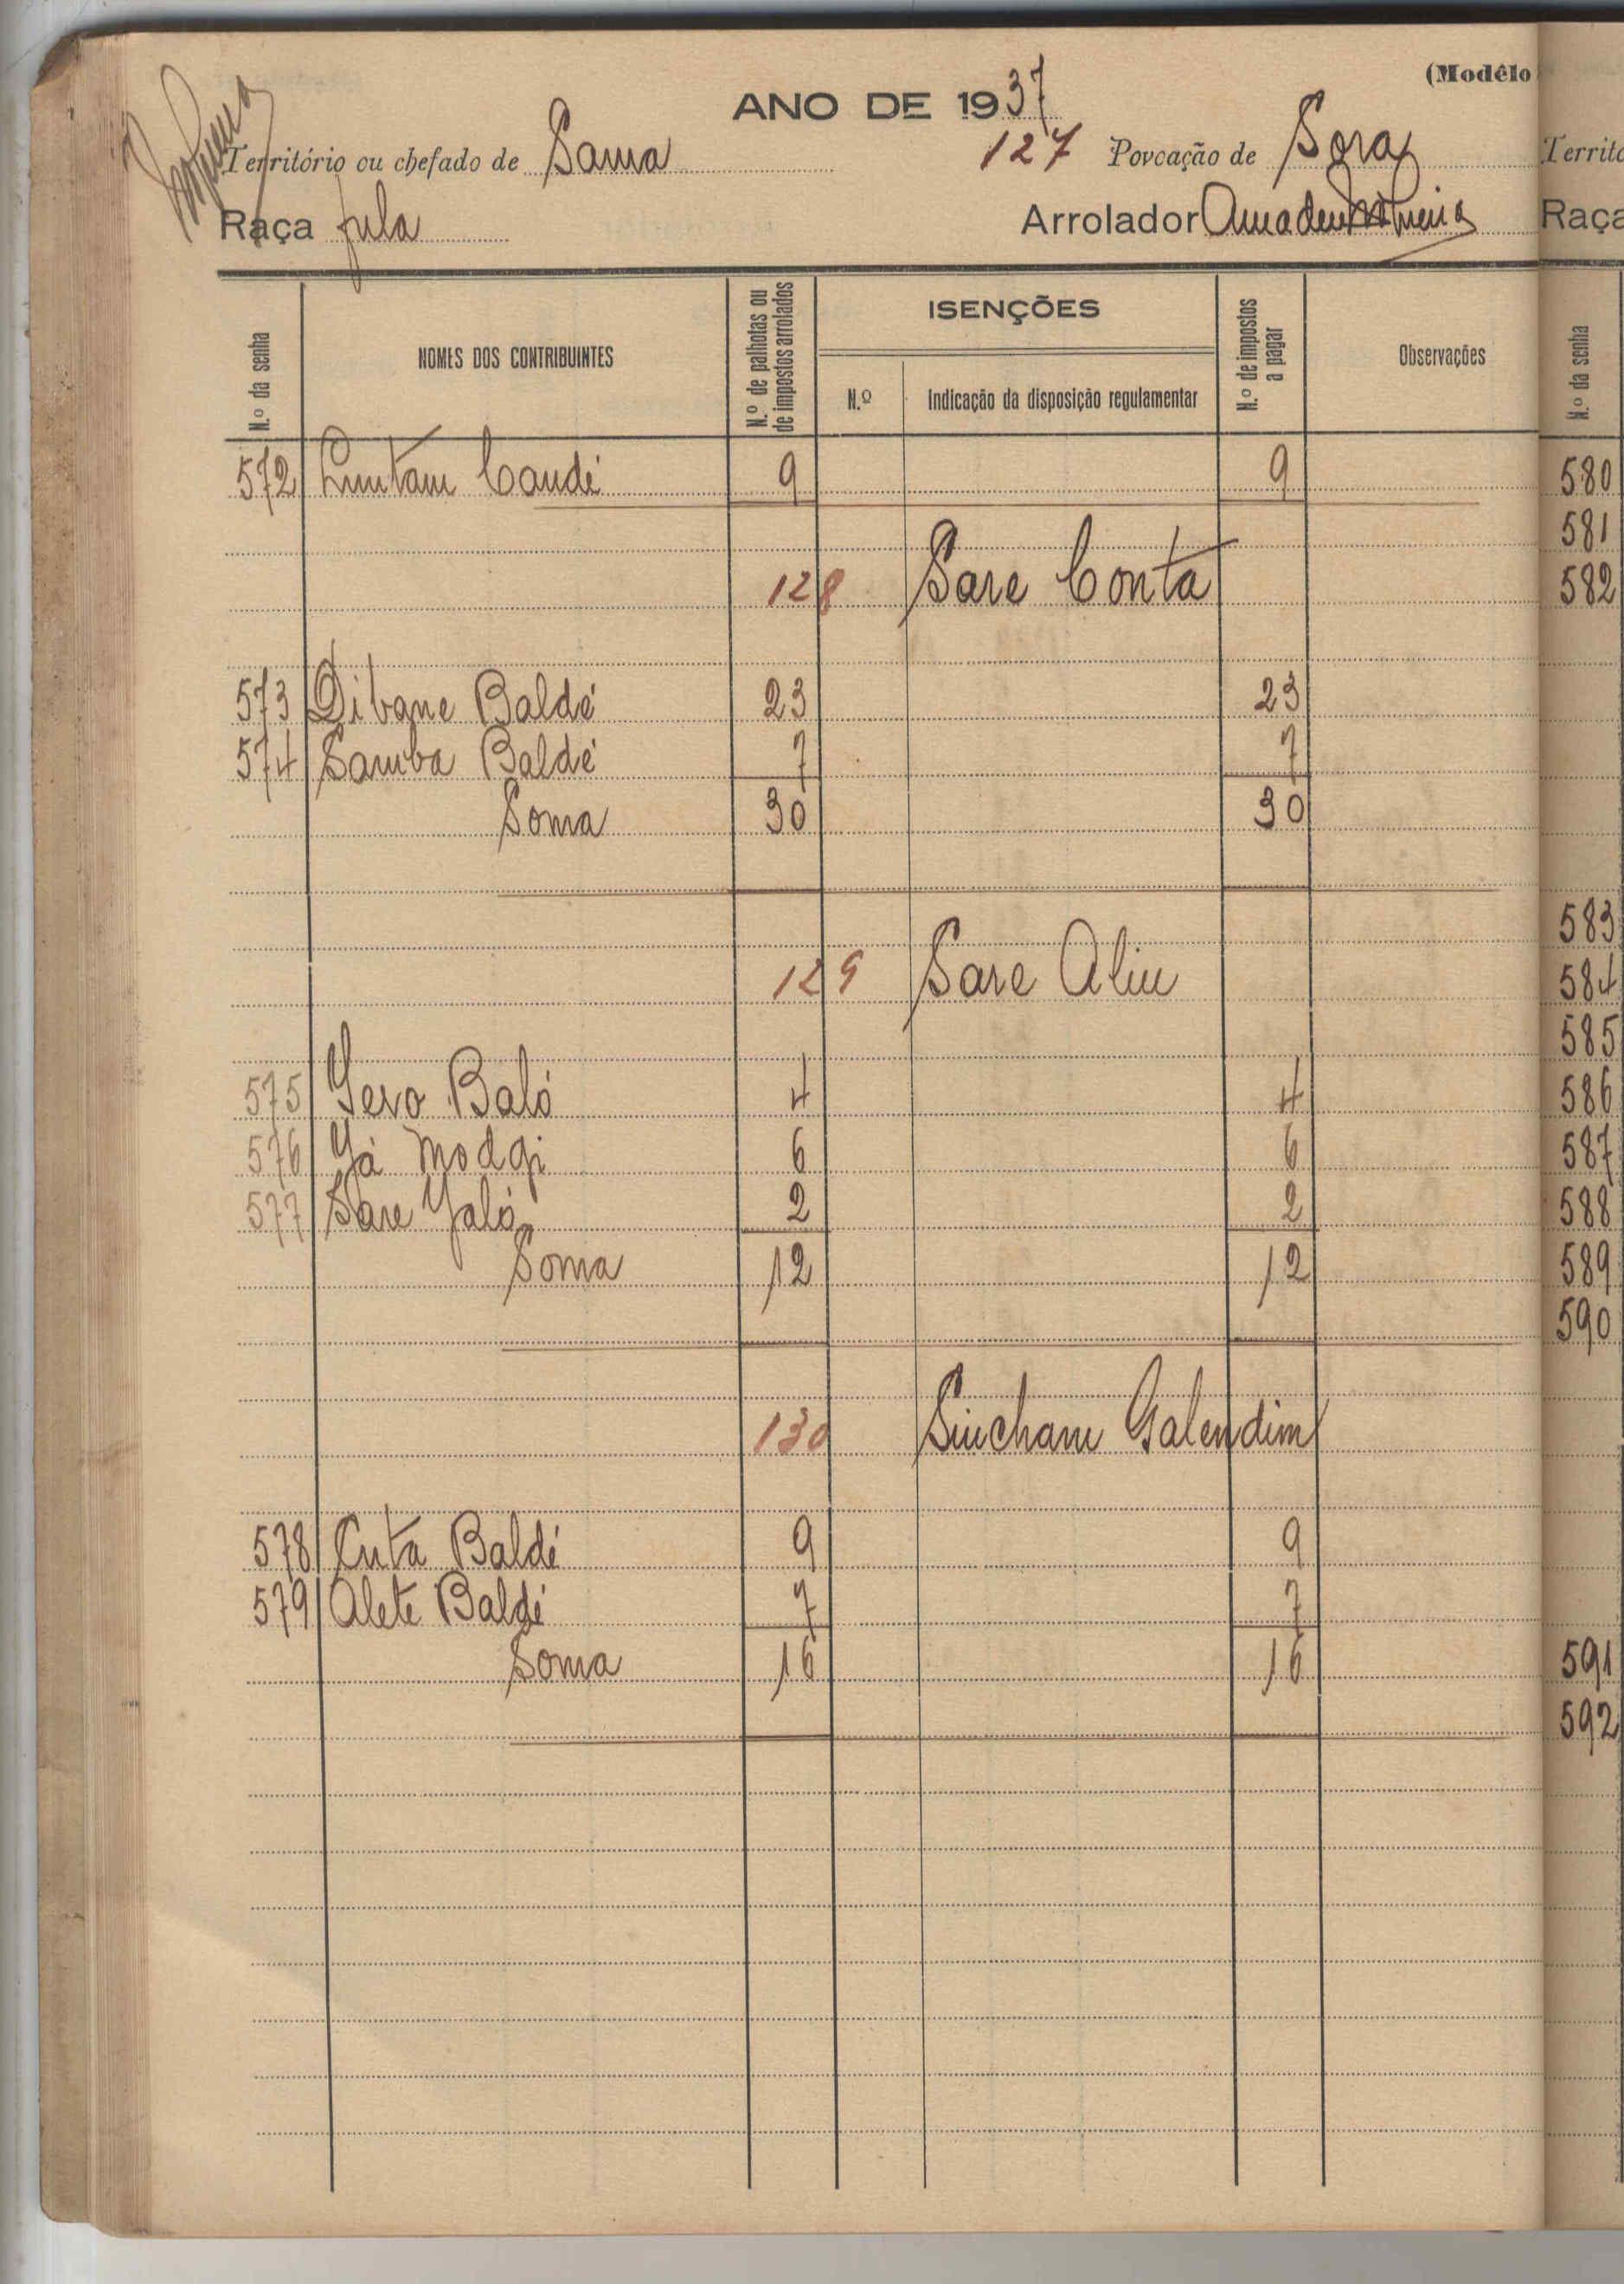 (Modêlo
ANO DE 1937
Território ou chefado de Sama 127 Povoação de Sora
Raça fula Arrolador Amadeu
N.º da senha NOMES DOS CONTRIBUINTES N.º de palhotas ou de impostos arrolados ISENÇÕES N.º Indicação da disposição regulamentar N.º de impostos a pagar Observações
572 Candé 9 9
128 Sare Conta
573 Dibane Baldé 23 23
574 Samba Baldé 7 7
Soma 30 30
129 Sare Aliu
575 Yero Baló 4 4
576 Yá Modgi 6 6
577 Sare Yaló 2 2
Soma 12 12
130 Sincham Galendim
578 Cuta Baldé 9 9
579 Alete Baldé 7 7
Soma 16 16
Territó
Raça
N.º da senha
580
581
582
583
584
585
586
587
588
589
590
591
592